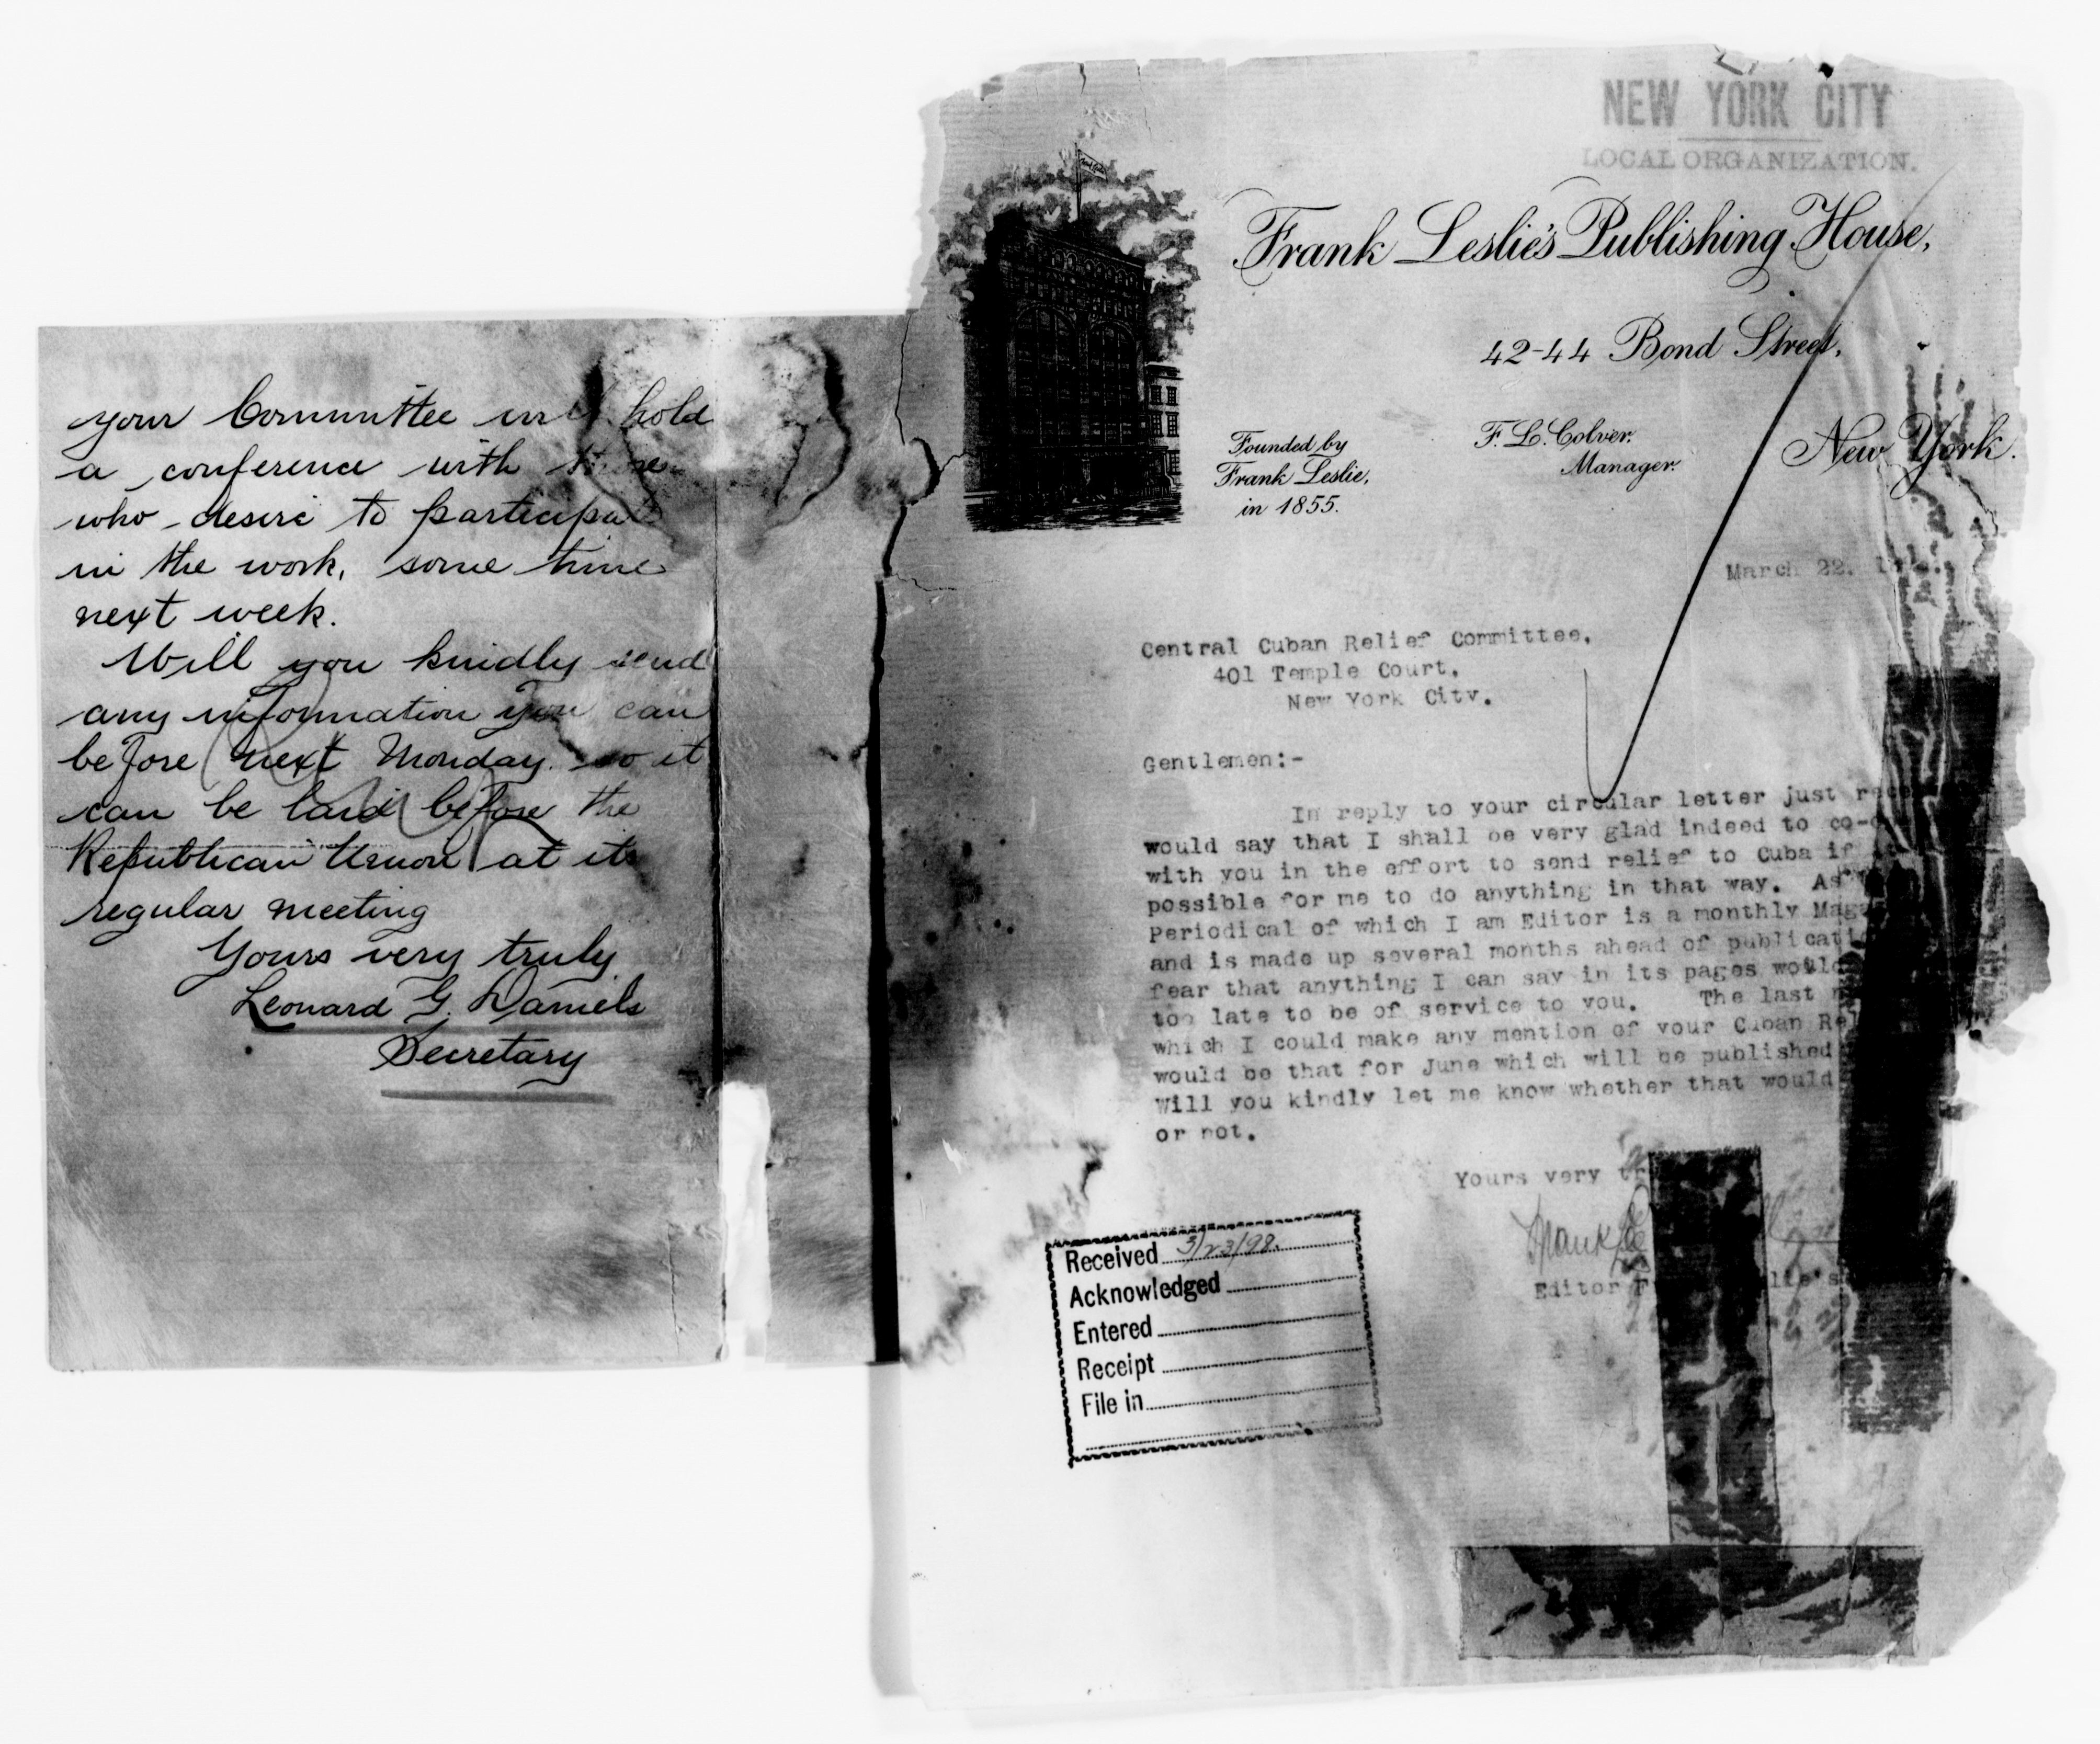 your Committee will hold
a conference with those
who desire to participa
in the work, some time
next week.
Will you kindly send
any information you can
before next Monday. so it
can be laid before the
Republican Union at its
regular meeting
Yours very truly
Leonard G. Daniels
Secretary
NEW YORK CITY
LOCAL ORGANIZATION.
Frank Leslie's Publishing House,
42-44 Bond Street,
Founded by
Frank Leslie,
in 1855.
F. L. Colver.
Manager.
New York.
March 22,
Central Cuban Relief Committee,
401 Temple Court,
New York City.
Gentlemen:-
In reply to your circular letter just rece
would say that I shall be very glad indeed to co-
with you in the effort to send relief to Cuba if
possible for me to do anything in that way. As
Periodical of which I am Editor is a monthly Mag
and is made up several months ahead of publicati
fear that anything I can say in its pages would
too late to be of service to you. The last
which I could make any mention of your Cuban Re
would be that for June which will be published
Will you kindly let me know whether that would
or not.
Yours very tr
Frank Le
Editor F lie's
Received 3/23/98.
Acknowledged
Entered
Receipt
File in